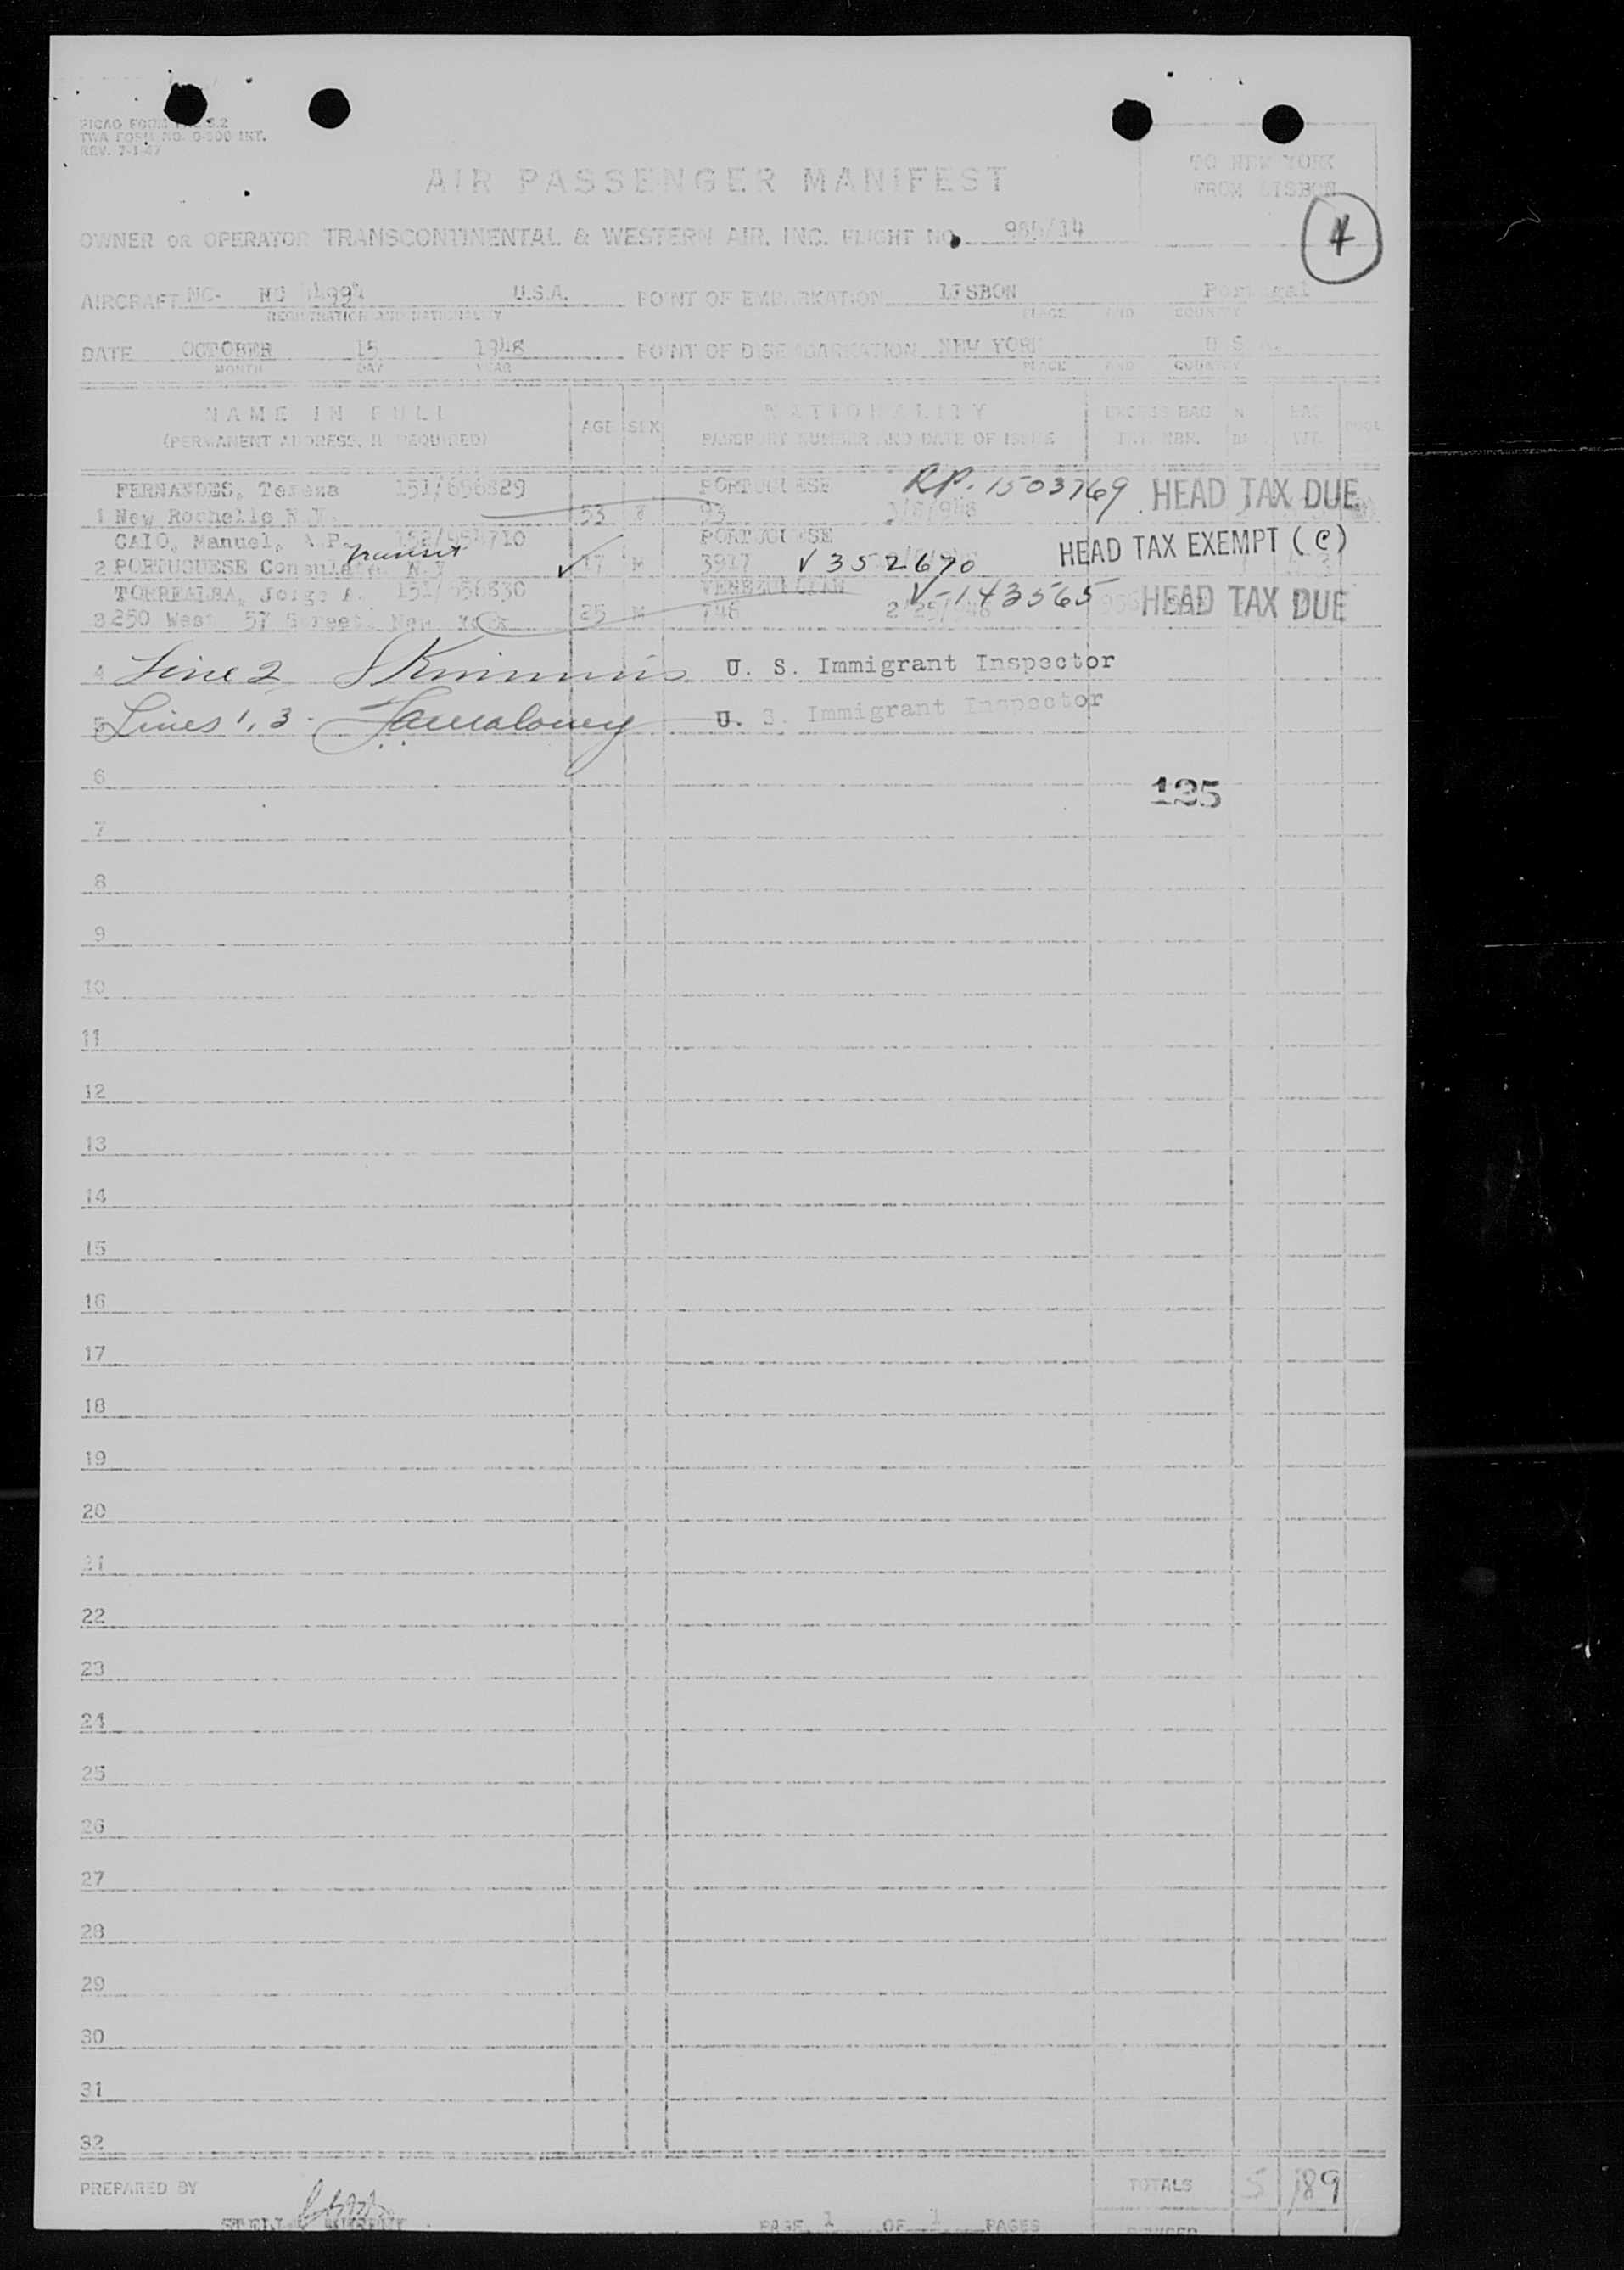 TWA FORM NO. 0-500 INT.
REV. 7-1-47
TO NEW YORK
FROM LISBON
4
AIR PASSENGER MANIFEST
OWNER OR OPERATOR TRANSCONTINENTAL & WESTERN AIR, INC. FLIGHT NO.
AIRCRAFT NC- NC U.S.A. POINT OF EMBARKATION LISBON Portugal
REGISTRATION AND NATIONALITY PLACE AND COUNTRY
DATE OCTOBER 15 1948 POINT OF DISEMBARKATION NEW YORK U S
MONTH DAY YEAR PLACE AND COUNTRY
NAME IN FULL
(PERMANENT ADDRESS, IF REQUIRED)
AGE SEX
NATIONALITY
PASSPORT NUMBER AND DATE OF ISSUE
EXCESS BAG
FERNANDES, Tereza 151/656829 PORTUGUESE RP. 1503769 HEAD TAX DUE
1 New Rochelle N.Y. 53 93
CAIO, Manuel, PORTUGUESE HEAD TAX EXEMPT (C)
transit
2 PORTUGUESE Consulate N.Y M V 352670
TORREALBA, Jorge A. 151/656830 VENEZUELIAN V-143565 HEAD TAX DUE
3 250 West 57 Street New York 25 M 746
4 Line 2 U. S. Immigrant Inspector
5 Lines 1, 3. U. S. Immigrant Inspector
6
125
7
8
9
10
11
12
13
14
15
16
17
18
19
20
21
22
23
24
25
26
27
28
29
30
31
32
PREPARED BY
TOTALS 5 189
PAGE 1 OF 1 PAGES